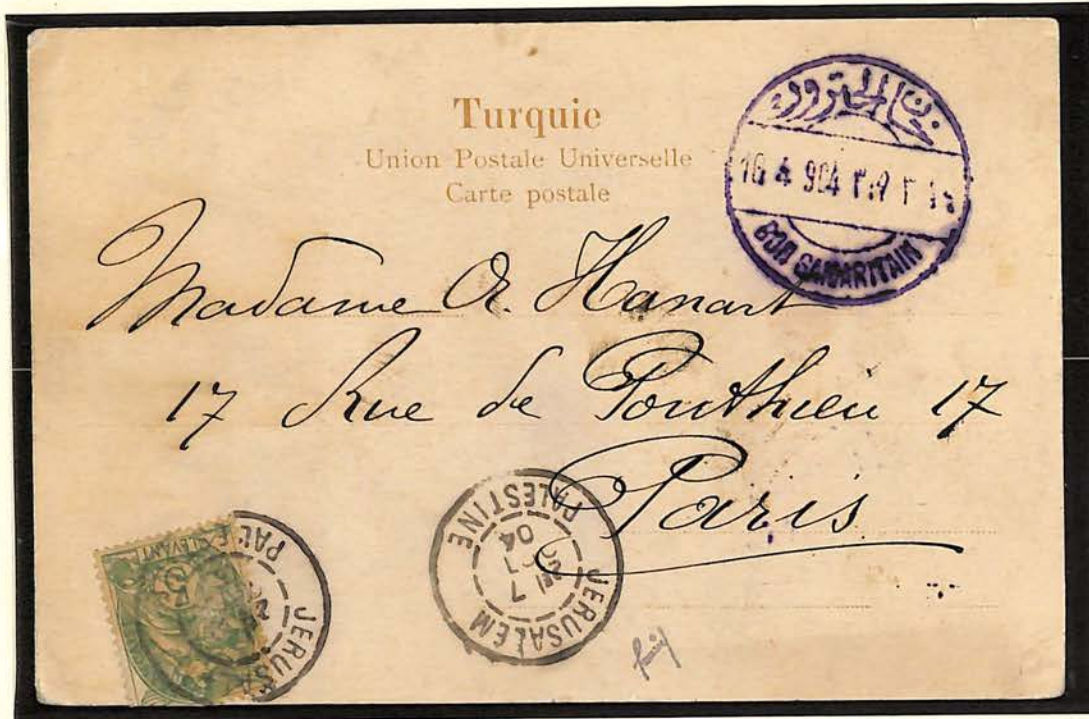 Turquie
Union Postale Universelle
Carte postale
16 4 904 ٣٠٩ ٢
BON SAMARITAIN
Madame A. Hanart
17 Rue de Ponthieu 17
Paris
JERUSALEM
7
04
PALESTINE
LEVANT
5
JERUSA
PALE